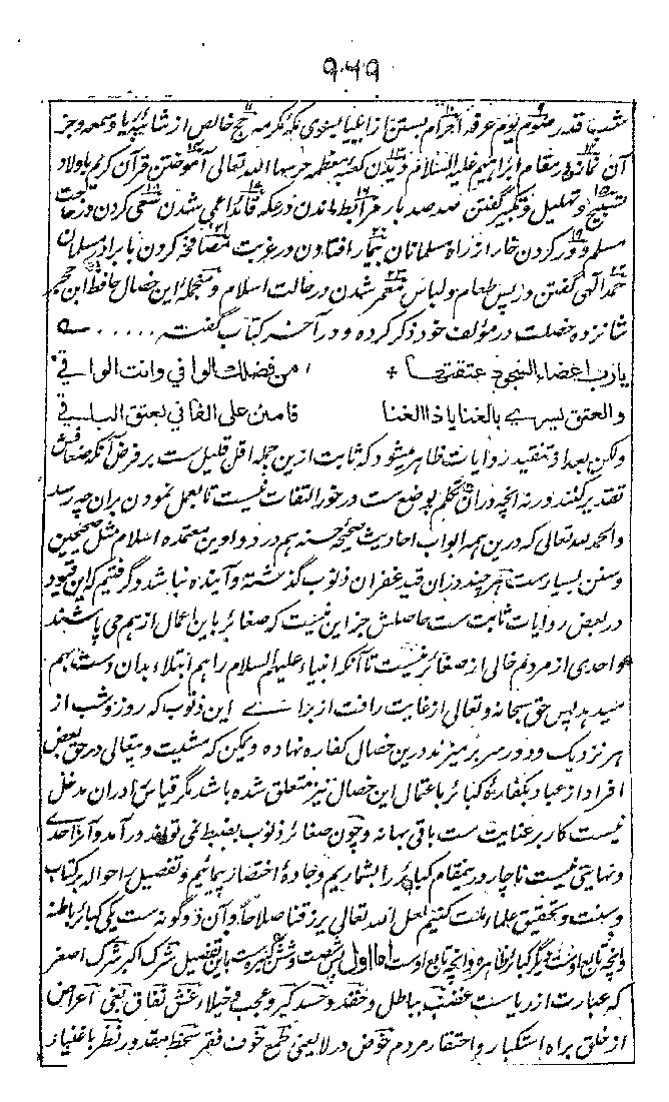 شب قدر صوم یوم عرفه احرام بستن از ایلیا بسوی مکه مکرمه حج خالص از شائبه ریا و سمعه و جز
آن نماز در مقام ابراهیم علیه السلام دیدن کعبه معظمه حرسها الله تعالی آموختن قرآن کریم باولاد
تسبیح و تهلیل و تکبیر گفتن صد صد بار مرابط ماندن در عکه قائد اعمی شدن سعی کردن در حاجت
مسلم دور کردن خار از راه مسلمانان بیمار افتادن در غربت مصافحه کردن با برادر مسلمان
حمد الهی گفتن در پس طعام و لباس معمر شدن در حالت اسلام و منجمله این خصال حافظ ابن حجر
شانزده خصلت در مؤلف خود ذکر کرده و در آخر کتاب گفته .....
یارب اعضاء السجود عتقتها + من فضلك الوافی وانت الواقی
والعتق یسری بالغنا یا ذا الغنا فامنن علی الفانی بعتق الباقی
ولکن بعد از تنقید روایات ظاهر میشود که ثابت ازین جمله اقل قلیل ست بر فرض آنکه ضعافش
تقدیر کنند ورنه انچه دران تکلم بوضع ست در خور التفات نیست تا بعمل نمودن بران چه رسد
والحمد لله تعالی که درین همه ابواب احادیث صحیحه حسنه هم در دواوین معتمده اسلام مثل صحیحین
و سنن بسیارست هر چند دران قید غفران ذنوب گذشته و آینده نباشد و گرفتیم که این قیود
در بعض روایات ثابت ست حاصلش جز این نیست که صغائر باین اعمال از هم می پاشند
و احدی از مردم خالی از صغائر نیست تا آنکه انبیاء علیهم السلام را هم ابتلاء بدان دست بهم
میدهد پس حق سبحانه و تعالی از غایت رافت از برای این ذنوب که روز و شب از
هر نزدیک و دور سر بر میزند درین خصال کفاره نهاده و لیکن که مشیت ویتعالی در حق بعض
افراد از عباد بکفاره کبائر باعتمال این خصال نیز متعلق شده باشد مگر قیاس را دران مدخل
نیست کار بر عنایت ست باقی بهانه و چون صغائر ذنوب بضبط نمی تواند در آمد و آنرا حدے
و نهایتی نیست ناچار درینمقام کبائر را بشماریم و جادهٔ اختصار پیمائیم و تفصیل احواله بر کتاب
و سنت و تحقیق علماء ملت کنیم لعل الله تعالی یرزقنا صلاحا و آن دو گونه ست یکی کبائر باطنه
وانچه تابع اوست دیگر کبائر ظاهره وانچه تابع اوست اما اول پس شصت و شش کبیره ست باین تفصیل شرک اکبر شرک اصغر
که عبارت از ریاست غضب بباطل و حقد و حسد کبر و عجب و خیلاء غش نفاق بغی اعراض
از خلق براه استکبار و احتقار مردم خوض در لایعنی طمع خوف فقر سخط مقدور نظر باغنیاء